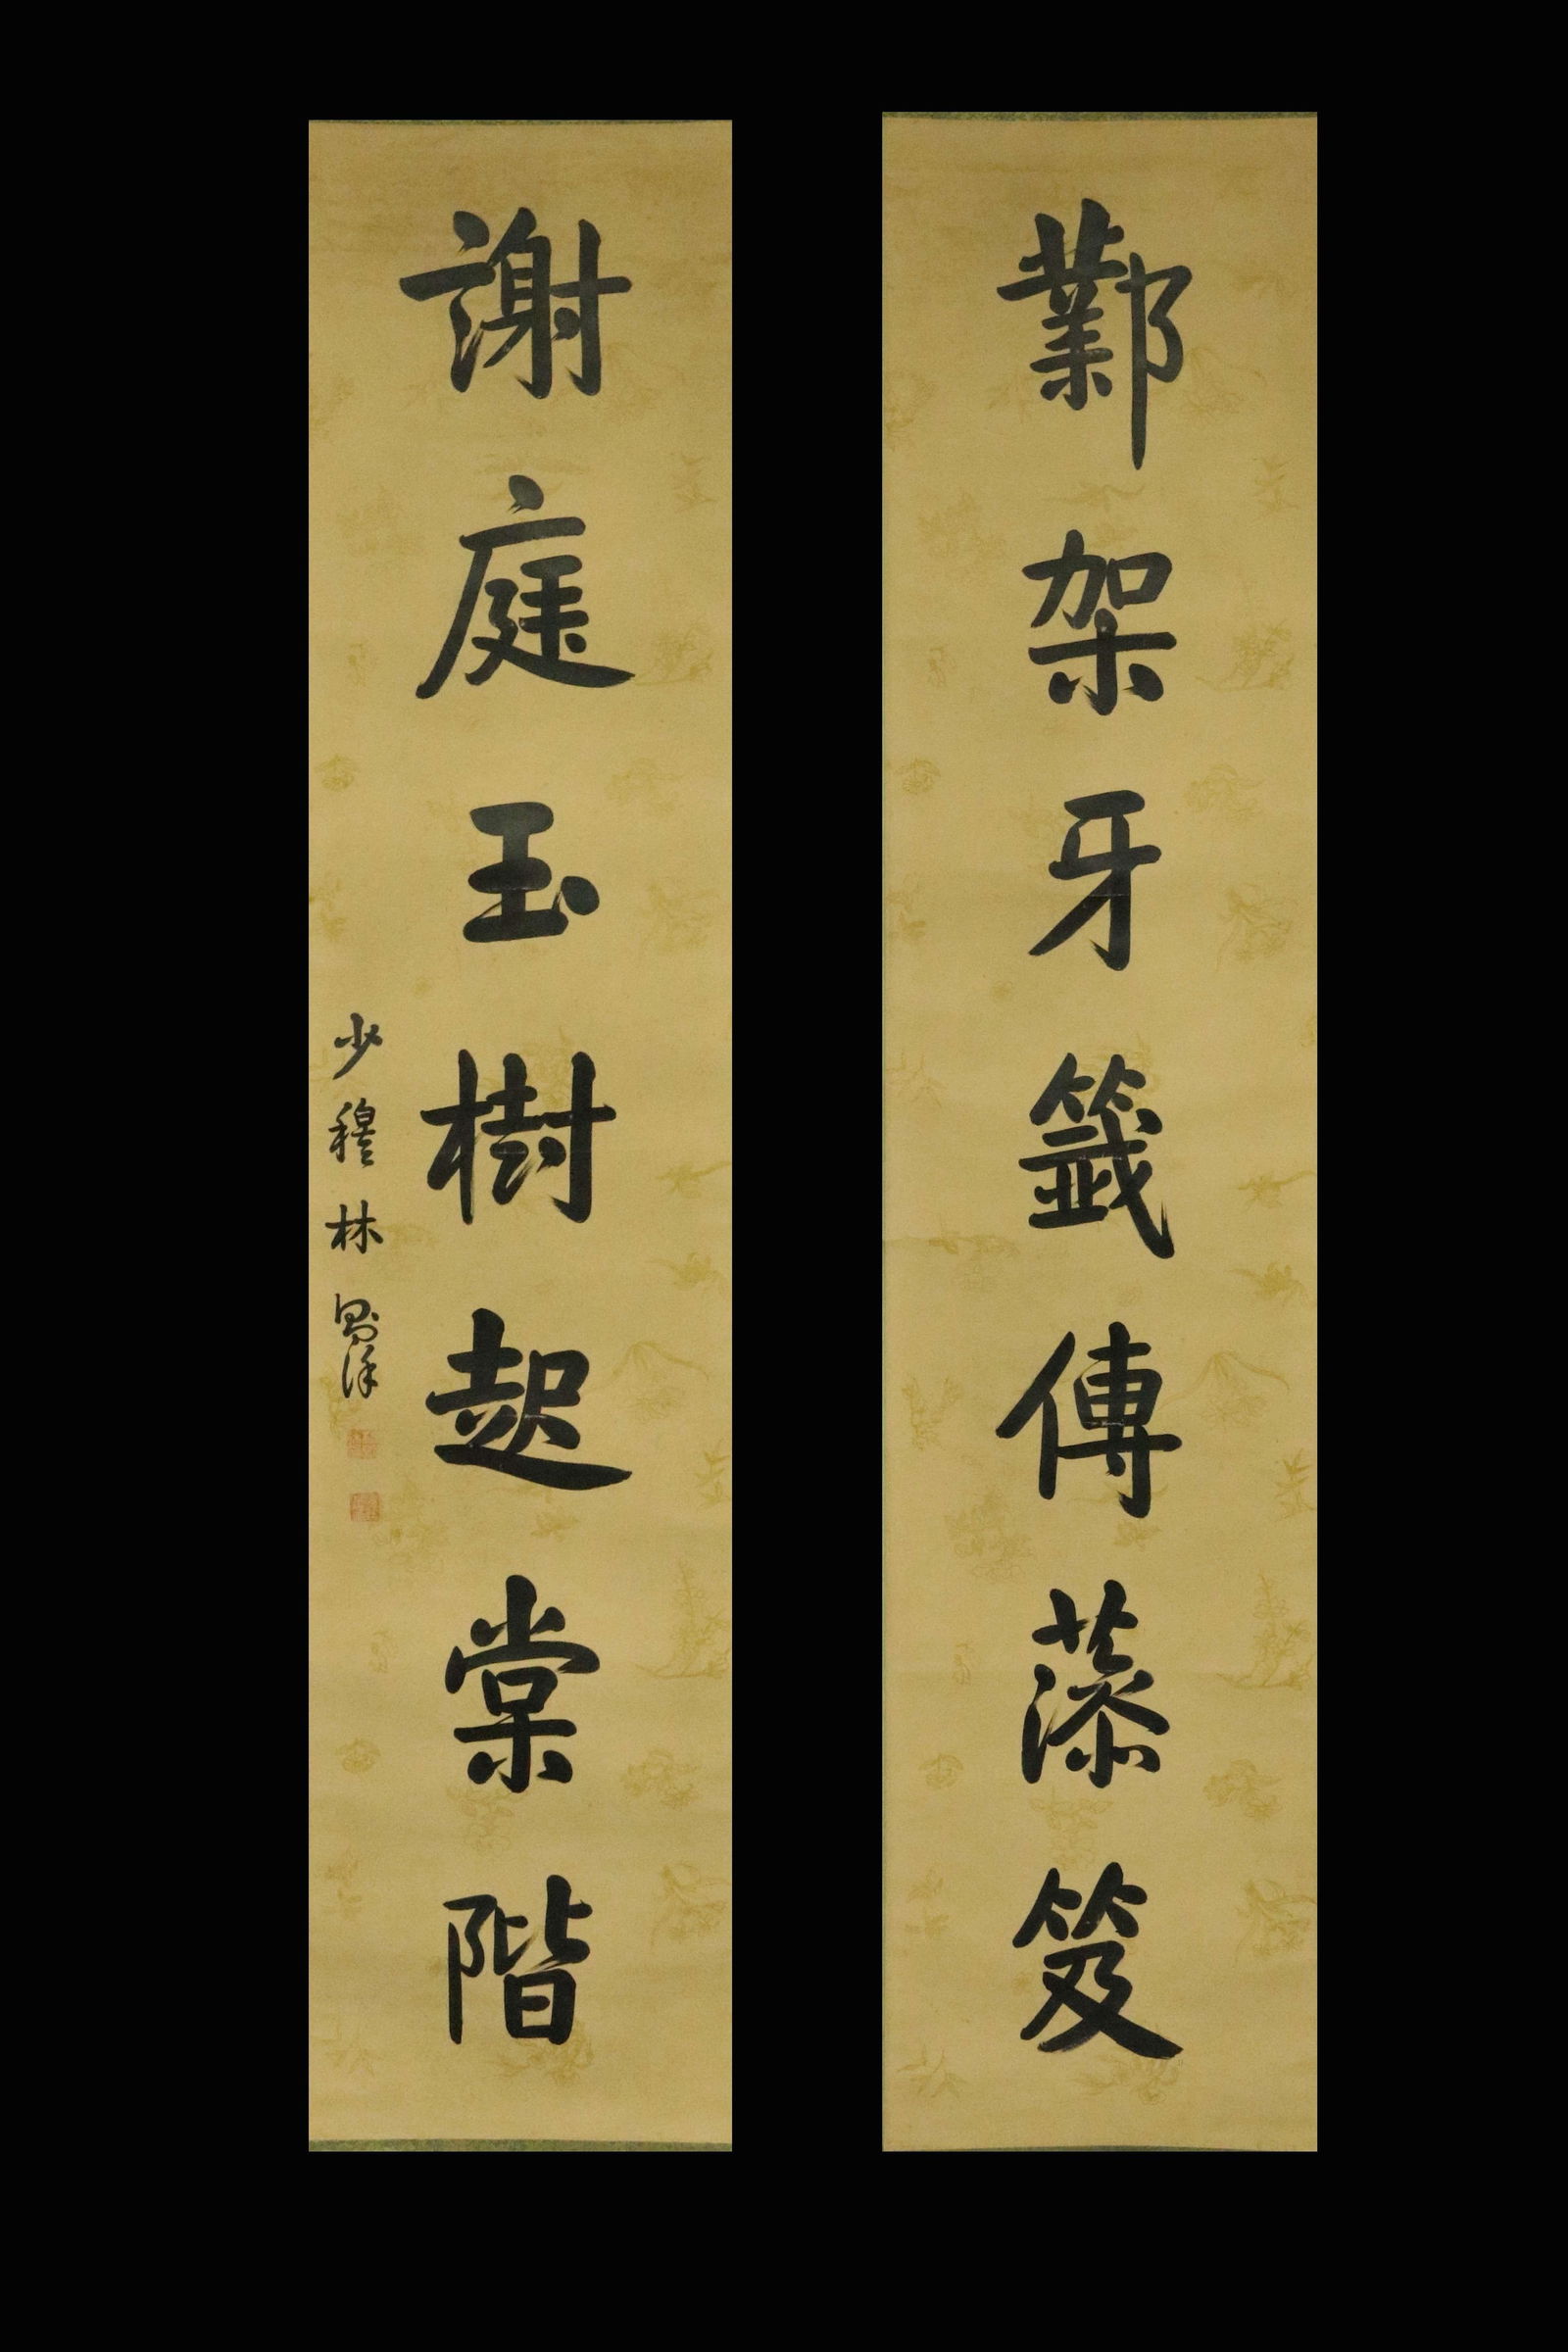 鄴架牙籤傳笈
謝庭玉樹起棠階
少穆林則徐